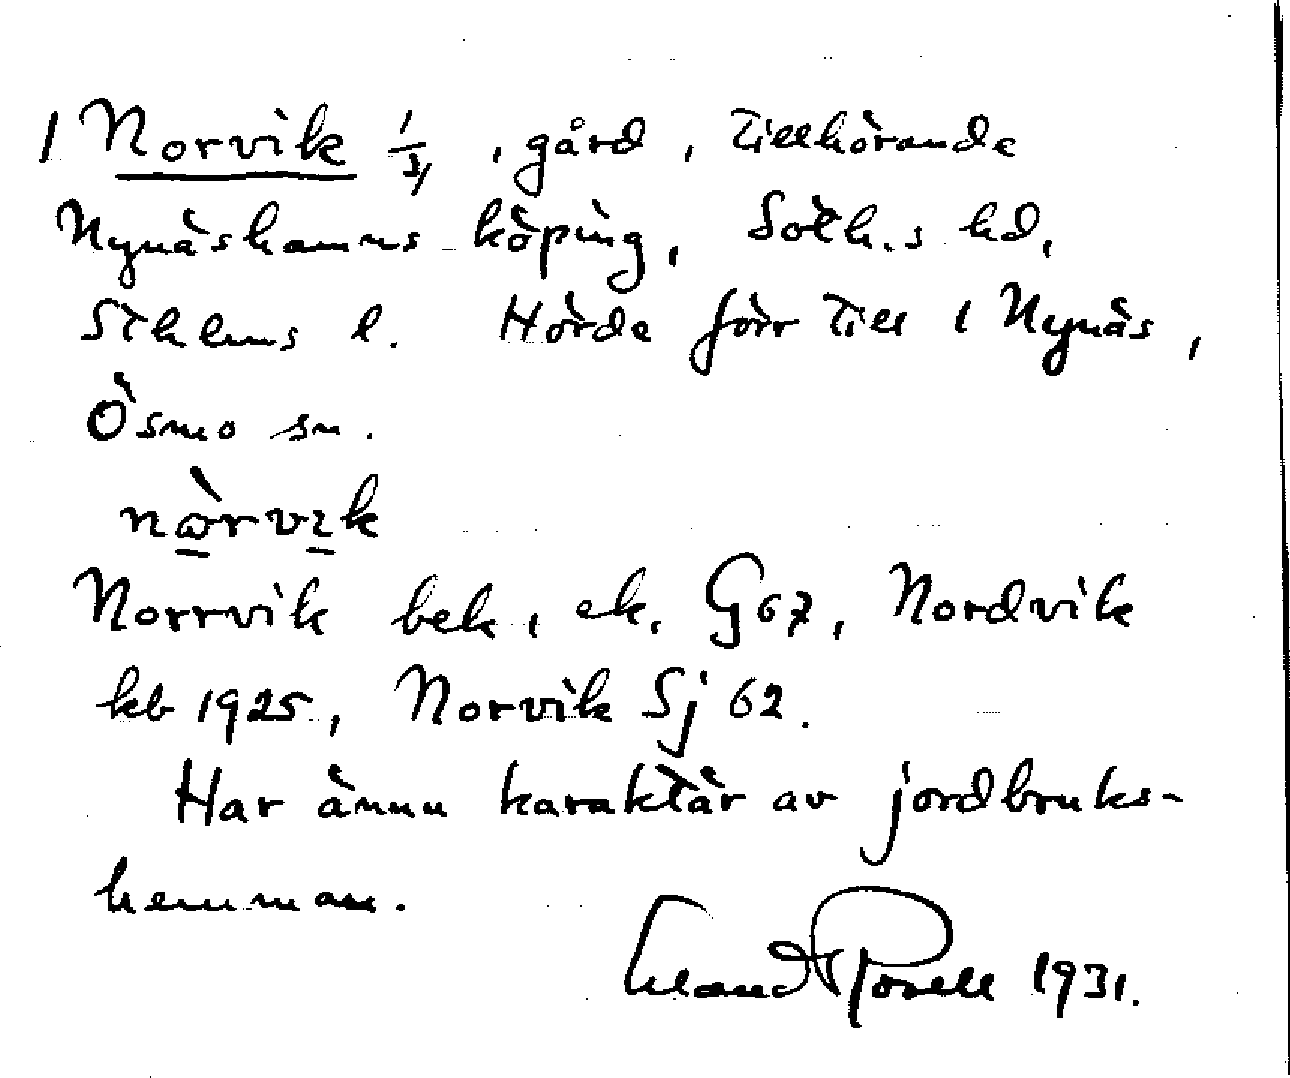 1 Norvik 1/4, gård, tillhörande
Nynäshamns köping, Soth.s hd,
Sthlms l. Hörde förr till 1 Nynäs,
Ösmo sn.
nòrvɩk
Norrvik bek, ek. G67, Nordvik
kb 1925, Norvik Sj 62.
Har ännu karaktär av jordbruks-
hemman.
Erland Rosell 1931.